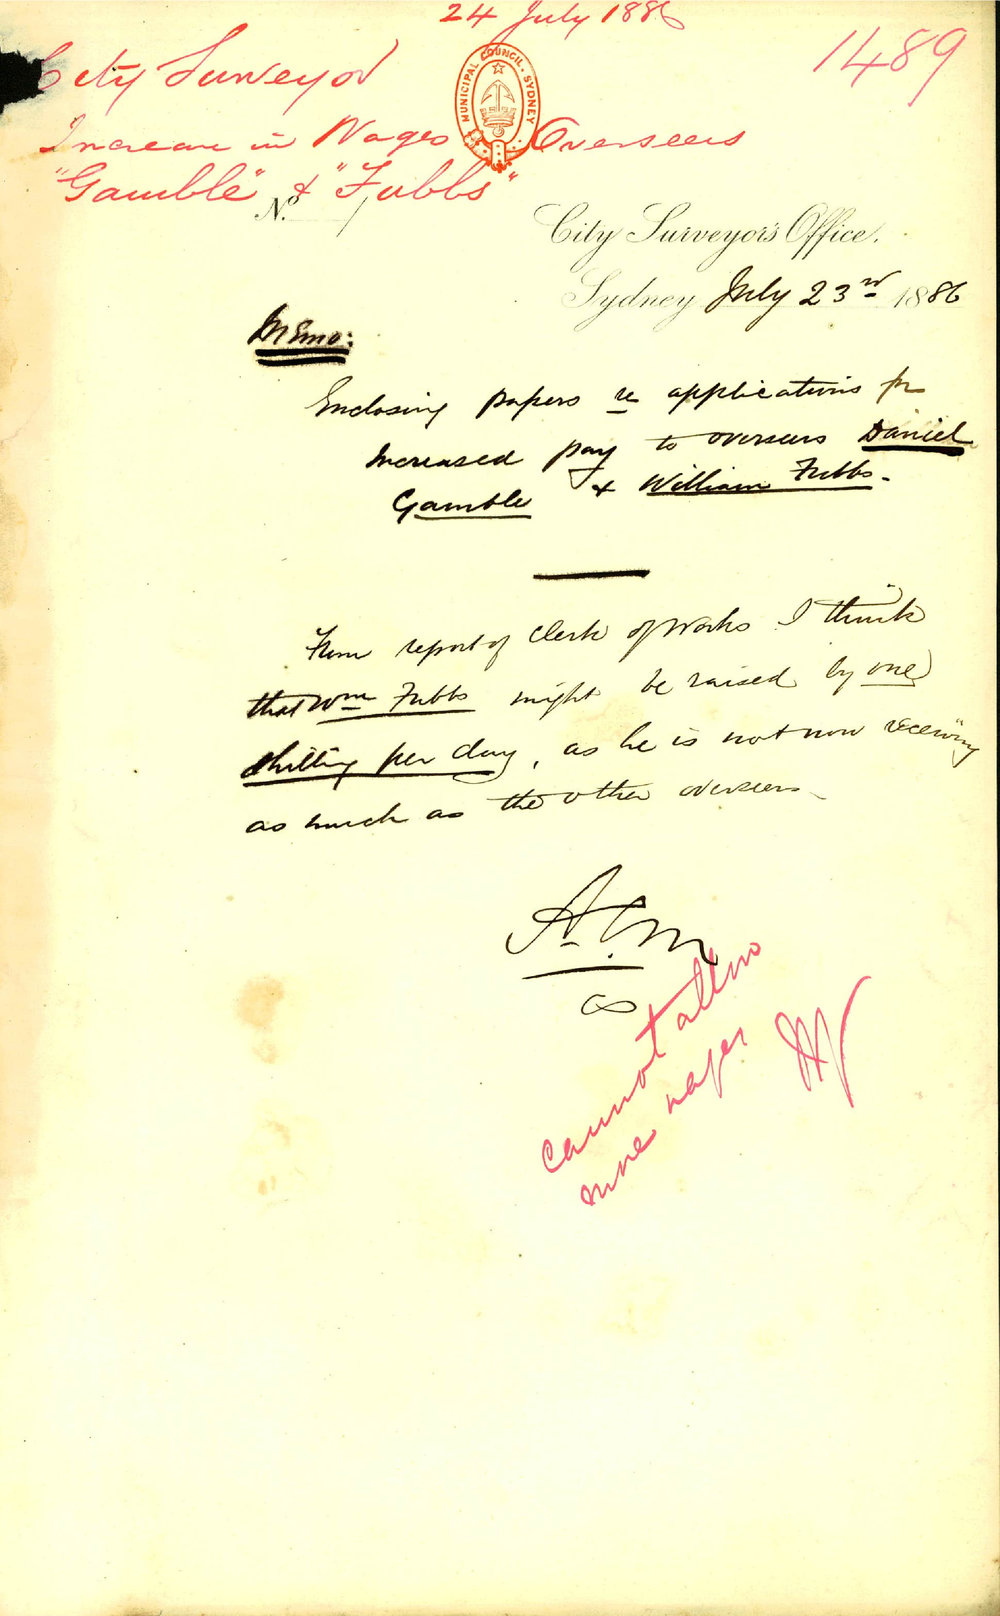 24 July 1886
1489
City Surveyor
MUNICIPAL COUNCIL · SYDNEY
Increase in Wages Overseers
"Gamble" & "Fubbs"
No.
City Surveyor's Office.
Sydney July 23rd 1886
Memo:
Enclosing papers re applications for
increased pay to overseers Daniel
Gamble & William Fubbs.
From report of Clerk of Works I think
that Wm Fubbs might be raised by one
shilling per day, as he is not now receiving
as much as the other overseers
cannot allow
more wages